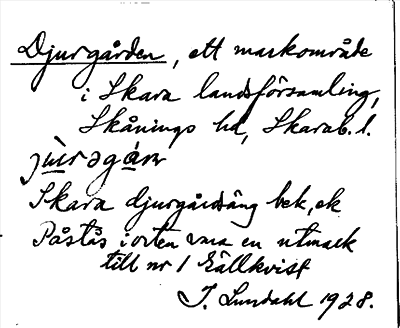 Djurgården, ett markområde
i Skara landsförsamling,
Skånings hd, Skarab. l.
Skara djurgårdsäng bek, ek
Påstås i orten vara en utmark
till nr 1 Källkvist
I. Lundahl 1928.